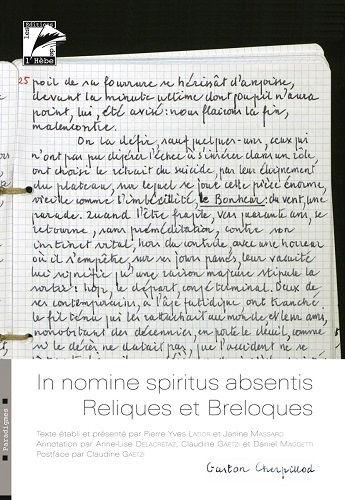 les Editions
de l'Hèbe
25 poil de sa fourrure se hérissât d'angoisse,
devant la minute ultime dont goupil n'aura
point, lui, été avisé : nous flairons la fin,
malencontre.
On la défie, sauf quelques-uns, ceux qui
n'ont pas pu digérer l'échec à s'insérer dans un rôle,
ont choisi le retrait du suicide, par leur éloignement
du plateau, sur lequel se joue cette pièce énorme,
vieille comme l'imbécillité, le Bonheur. du vent, une
parade. Quand l'être fragile, vers quarante ans, se
retourne, sans préméditation, contre son
instinct vital, hors du contrôle, avec une horreur
où il s'empêtre, sur ses jours passés, leur vacuité
lui signifie qu'une raison majeure stipule la
sortie : hop, le départ, congé terminal. Deux de
ses contemporains, à l'âge fatidique ont tranché
le fil ténu qui les rattachait au monde et leur ami,
nonobstant des décennies, en porte le deuil, comme
si le décès ne datait pas, que l'accident ne se
In nomine spiritus absentis
Reliques et Breloques
Texte établi et présenté par Pierre Yves Lador et Janine Massard
Annotation par Anne-Lise Delacrétaz, Claudine Gaetzi et Daniel Maggetti
Postface par Claudine Gaetzi
Gaston Cherpillod
Paradigmes